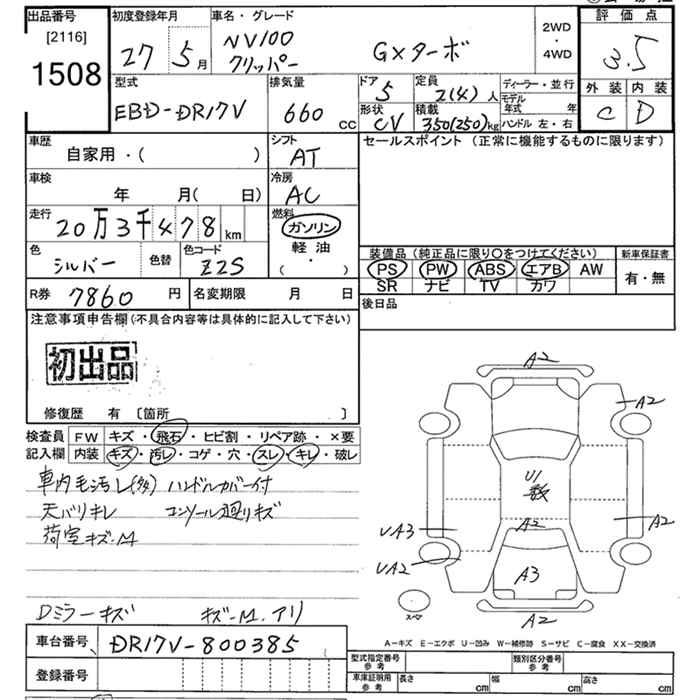 出品番号 初度登録年月 車名・グレード 評価点
[2116] 27 5月 NV100 クリッパー GXターボ 2WD・4WD 3.5
1508 外装 内装
型式 排気量 ドア 5 定員 2(4)人 ディーラー・並行 C D
EBD-DR17V 660cc 形状 CV 積載 350(250)kg モデル年式 年
ハンドル 左・右
車歴 シフト セールスポイント (正常に機能するものに限ります)
自家用・( ) AT
車検 冷房
年 月( 日) AC
走行 燃料
20万3千478km ガソリン
色 色替 色コード 軽油
シルバー Z2S ( ・ )
装備品 (純正品に限り○をつけてください) 新車保証書
PS PW ABS エアB AW 有・無
SR ナビ TV カワ
R券 7860円 名変期限 月 日 後日品
注意事項申告欄(不具合内容等は具体的に記入して下さい)
初出品
修復歴 有 [箇所 ]
検査員 FW キズ・飛石・ヒビ割・リペア跡・×要
記入欄 内装 キズ・汚レ・コゲ・穴・スレ・キレ・破レ
車内毛汚レ(多) ハンドルカバー付
天バリキレ コンソール廻りキズ
荷室キズ-M
Dミラーキズ キズ-M.アリ
A2
A2
U1
数
UA3 A2 A2
UA2
A3
スペア
A2
A-キズ E-エクボ U-凹み W-補修跡 S-サビ C-腐食 XX-交換済
車台番号 DR17V-800385
登録番号
型式指定番号 参考 類別区分番号 参考
車庫証明用 参考 長さ cm 幅 cm 高さ cm